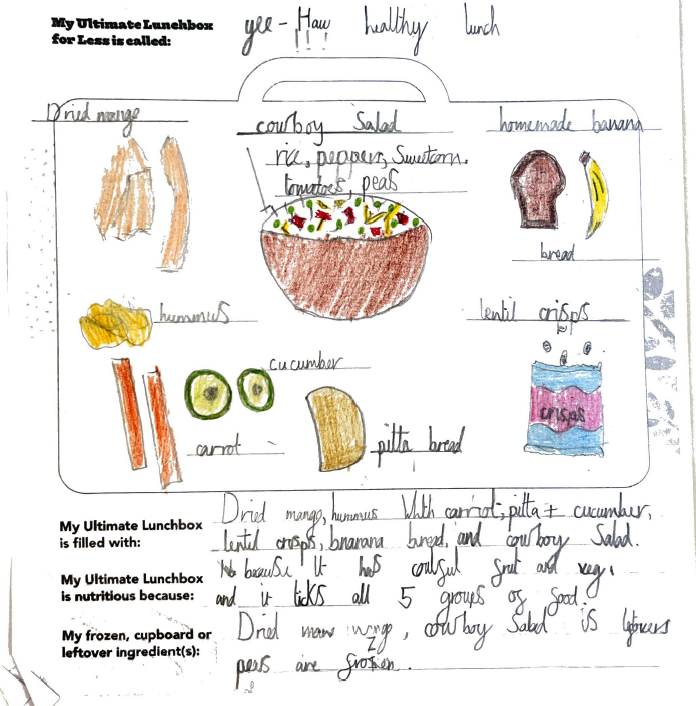 My Ultimate Lunchbox
for Less is called:
yee-Haw healthy lunch
!!!
Dried mango
cowboy Salad
homemade banana
rice, peppers, Sweetcorn.
tomatoes, peas
bread
hummus
lentil crisps
cucumber
crisps
carrot
pitta bread
My Ultimate Lunchbox
is filled with:
Dried mango, hummus With carrot, pitta + cucumber,
lentil crisps, bnanana bread, and cowboy Salad.
My Ultimate Lunchbox
is nutritious because:
because It has coulful fruit and veg,
and it ticks all 5 groups of food.
My frozen, cupboard or
leftover ingredient(s):
Dried mango, cowboy Salad is
peas are frozen.